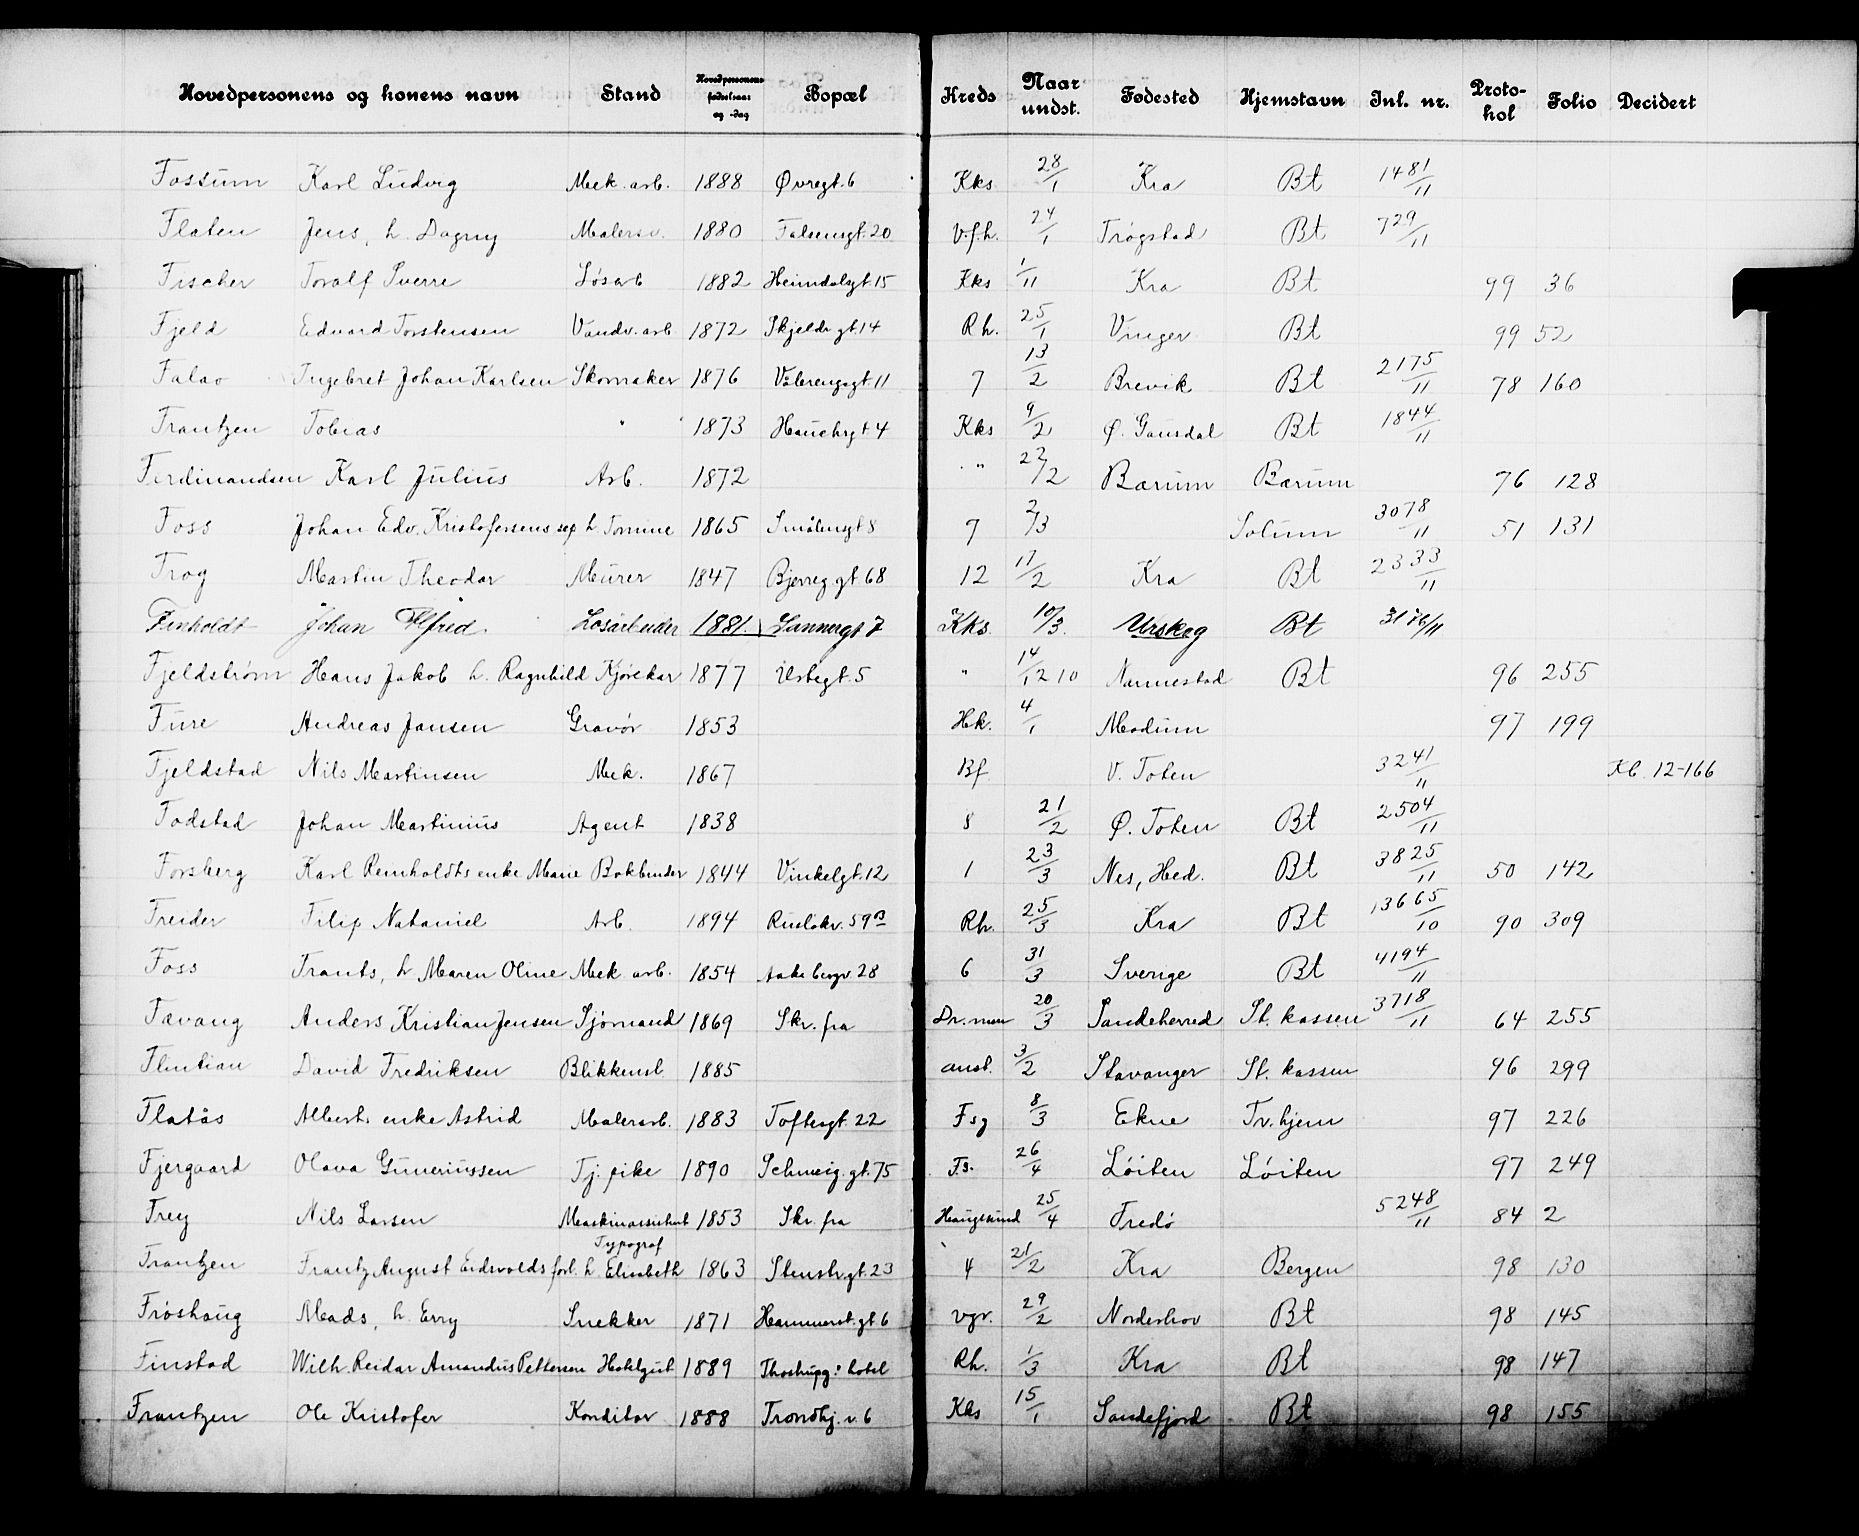 Hovedpersonens og konens navn Stand Hovedpersonens fødselsaar og -dag Bopæl Kreds Naar undst. Fødested Hjemstavn Inl. nr. Protokol Folio Decidert
Fossum Karl Ludvig Mek. arb. 1888 Øvregt. 6 Kks 28/1 Kra Bt 1481/11
Flaten Jens, h. Dagny Malersv. 1880 Falsensgt. 20 V.f.h. 24/1 Trøgstad Bt 729/11
Fischer Toralf Sverre Løsarb 1882 Heimdalsgt. 15 Kks 1/11 Kra Bt 99 36
Fjeld Edvard Torstensen Vandv. arb 1872 Skjeldr gt. 14 Rh. 25/1 Vinger Bt 99 52
Falao Ingebret Johan Karlsen Skomaker 1876 Vålerengsgt 11 7 13/2 Brevik Bt 2175/11 78 160
Frantzen Tobias " 1873 Hauchsgt 4 Kks 9/2 Ø. Gausdal Bt 1844/11
Ferdinandsen Karl Julius Arb. 1872 " 22/2 Bærum Bærum 76 128
Foss Johan Edv. Kristofersens sep h Tomine 1865 Smålensgt 8 7 2/3 Solum 3078/11 51 131
Frog Martin Theodor Murer 1847 Bjerreg. gt. 68 12 17/2 Kra Bt 2333/11
Finholdt Johan Alfred Løsarbeider 1881. Sannergt 7 Kks. 10/3. Urskog Bt 3176/11
Fjeldstrøm Hans Jakob h. Ragnhild Kjørekar 1877 Ustegt. 5 " 14/12 10 Nannestad Bt 96 255
Fure Andreas Jansen Gravør 1853 Hk. 4/1 Modum 97 199
Fjeldstad Nils Martinsen Mek. 1867 Bf V. Toten 3241/11 Kb. 12-166
Fodstad Johan Martinius Agent 1838 8 21/2 Ø. Toten Bt 2504/11
Forsberg Karl Reinholdts enke Marie Bokbinder 1844 Vinkelgt. 12 1 23/3 Nes, Hed. Bt 3825/11 50 142
Freider Filip Nataniel Arb. 1894 Ruseløkv. 59B Rh. 25/3 Kra Bt 13665/10 90 309
Foss Frants, h Maren Oline Mek arb. 1854 Aakebergv. 28 6 31/3 Sverige Bt 4194/11
Fævang Anders Kristian Jensen Sjømand 1869 Skr. fra Dr. men 20/3 Sandeherred St. kassen 3718/11 64 255
Flintian David Fredriksen Blikkensl. 1885 anst. 3/2 Stavanger St. kassen 96 299
Flatås Alberts enke Astrid Malerarb. 1883 Toftesgt. 22 Fsg 8/3 Ekne Tv. hjem 97 226
Fjergaard Olava Guneriussen Tj. pike 1890 Schweig. gt. 75 Fs. 26/4 Løiten Løiten 97 249
Frey Nils Larsen Maskinassistent 1853 Skr. fra Haugesund 25/4 Fredø 5248/11 84 2
Frantzen Frantz August Eidsvolds forl. h Elisabeth Typograf 1863 Stenstr. gt. 23 4 21/2 Kra Bergen 98 130
Frøshaug Mads, h. Erry Snekker 1871 Hammerst. gt 6 Vgr. 29/2 Norderhov Bt 98 145
Finstad Wilh. Reidar Amandus Pettersen Hotelgut 1889 Thostrupg: hotel Rh. 1/3 Kra Bt 98 147
Frantzen Ole Kristofer Konditor 1888 Trondhj. v. 6 Kks 15/1 Sandefjord Bt 98 155